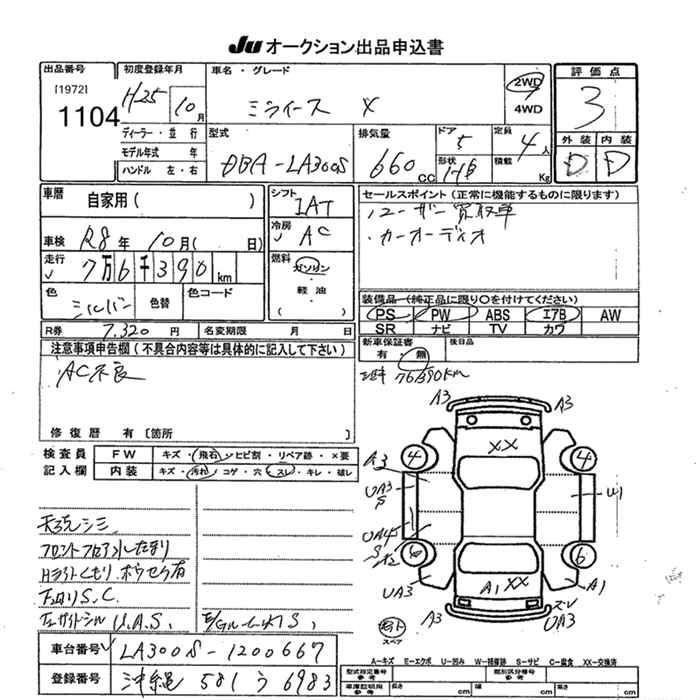 Ju オークション出品申込書
出品番号 初度登録年月 車名・グレード 評価点
[1972]
1104 H25 10月 ミライース X 2WD 4WD 3
ディーラー・並行 型式 排気量 ドア 定員 外装 内装
モデル年式 年 DBA-LA300S 660cc 5 4人 D D
ハンドル 左・右 形状 積載 Kg
車歴 自家用( ) シフト IAT セールスポイント(正常に機能するものに限ります)
車検 R8年10月( 日) 冷房 AC ・ユーザー買取車
走行 7万6千390km 燃料 ガソリン ・カーオーディオ
色 シルバー 色替 色コード 軽油・( )
装備品(純正品に限り○を付けてください)
PS PW ABS エアB AW
SR ナビ TV カワ
R券 7,320円 名変期限 月 日
注意事項申告欄(不具合内容等は具体的に記入して下さい) 新車保証書 後日品
AC不良 有・無
76390km
修復歴 有〔箇所 〕
検査員 FW キズ・飛石・ヒビ割・リペア跡・×要
記入欄 内装 キズ・汚れ・コゲ・穴・スレ・キレ・破レ
A3 A3
XX
4 4
A3
UA3 S U1
UA4S
6 6
UA3 A1 XX A1
A3 UA3
スペア
天張シミ
フロントフロア水たまり
Hライトくもり、ホウセキ有
下廻りS.C.
U.A.S.
A-キズ E-エクボ U-凹み W-補修跡 S-サビ C-腐食 XX-交換済
車台番号 LA300S-1200667
登録番号 沖縄 581 う 6983
型式指定番号 類別区分番号
車庫証明用 長さ cm 幅 cm 高さ cm